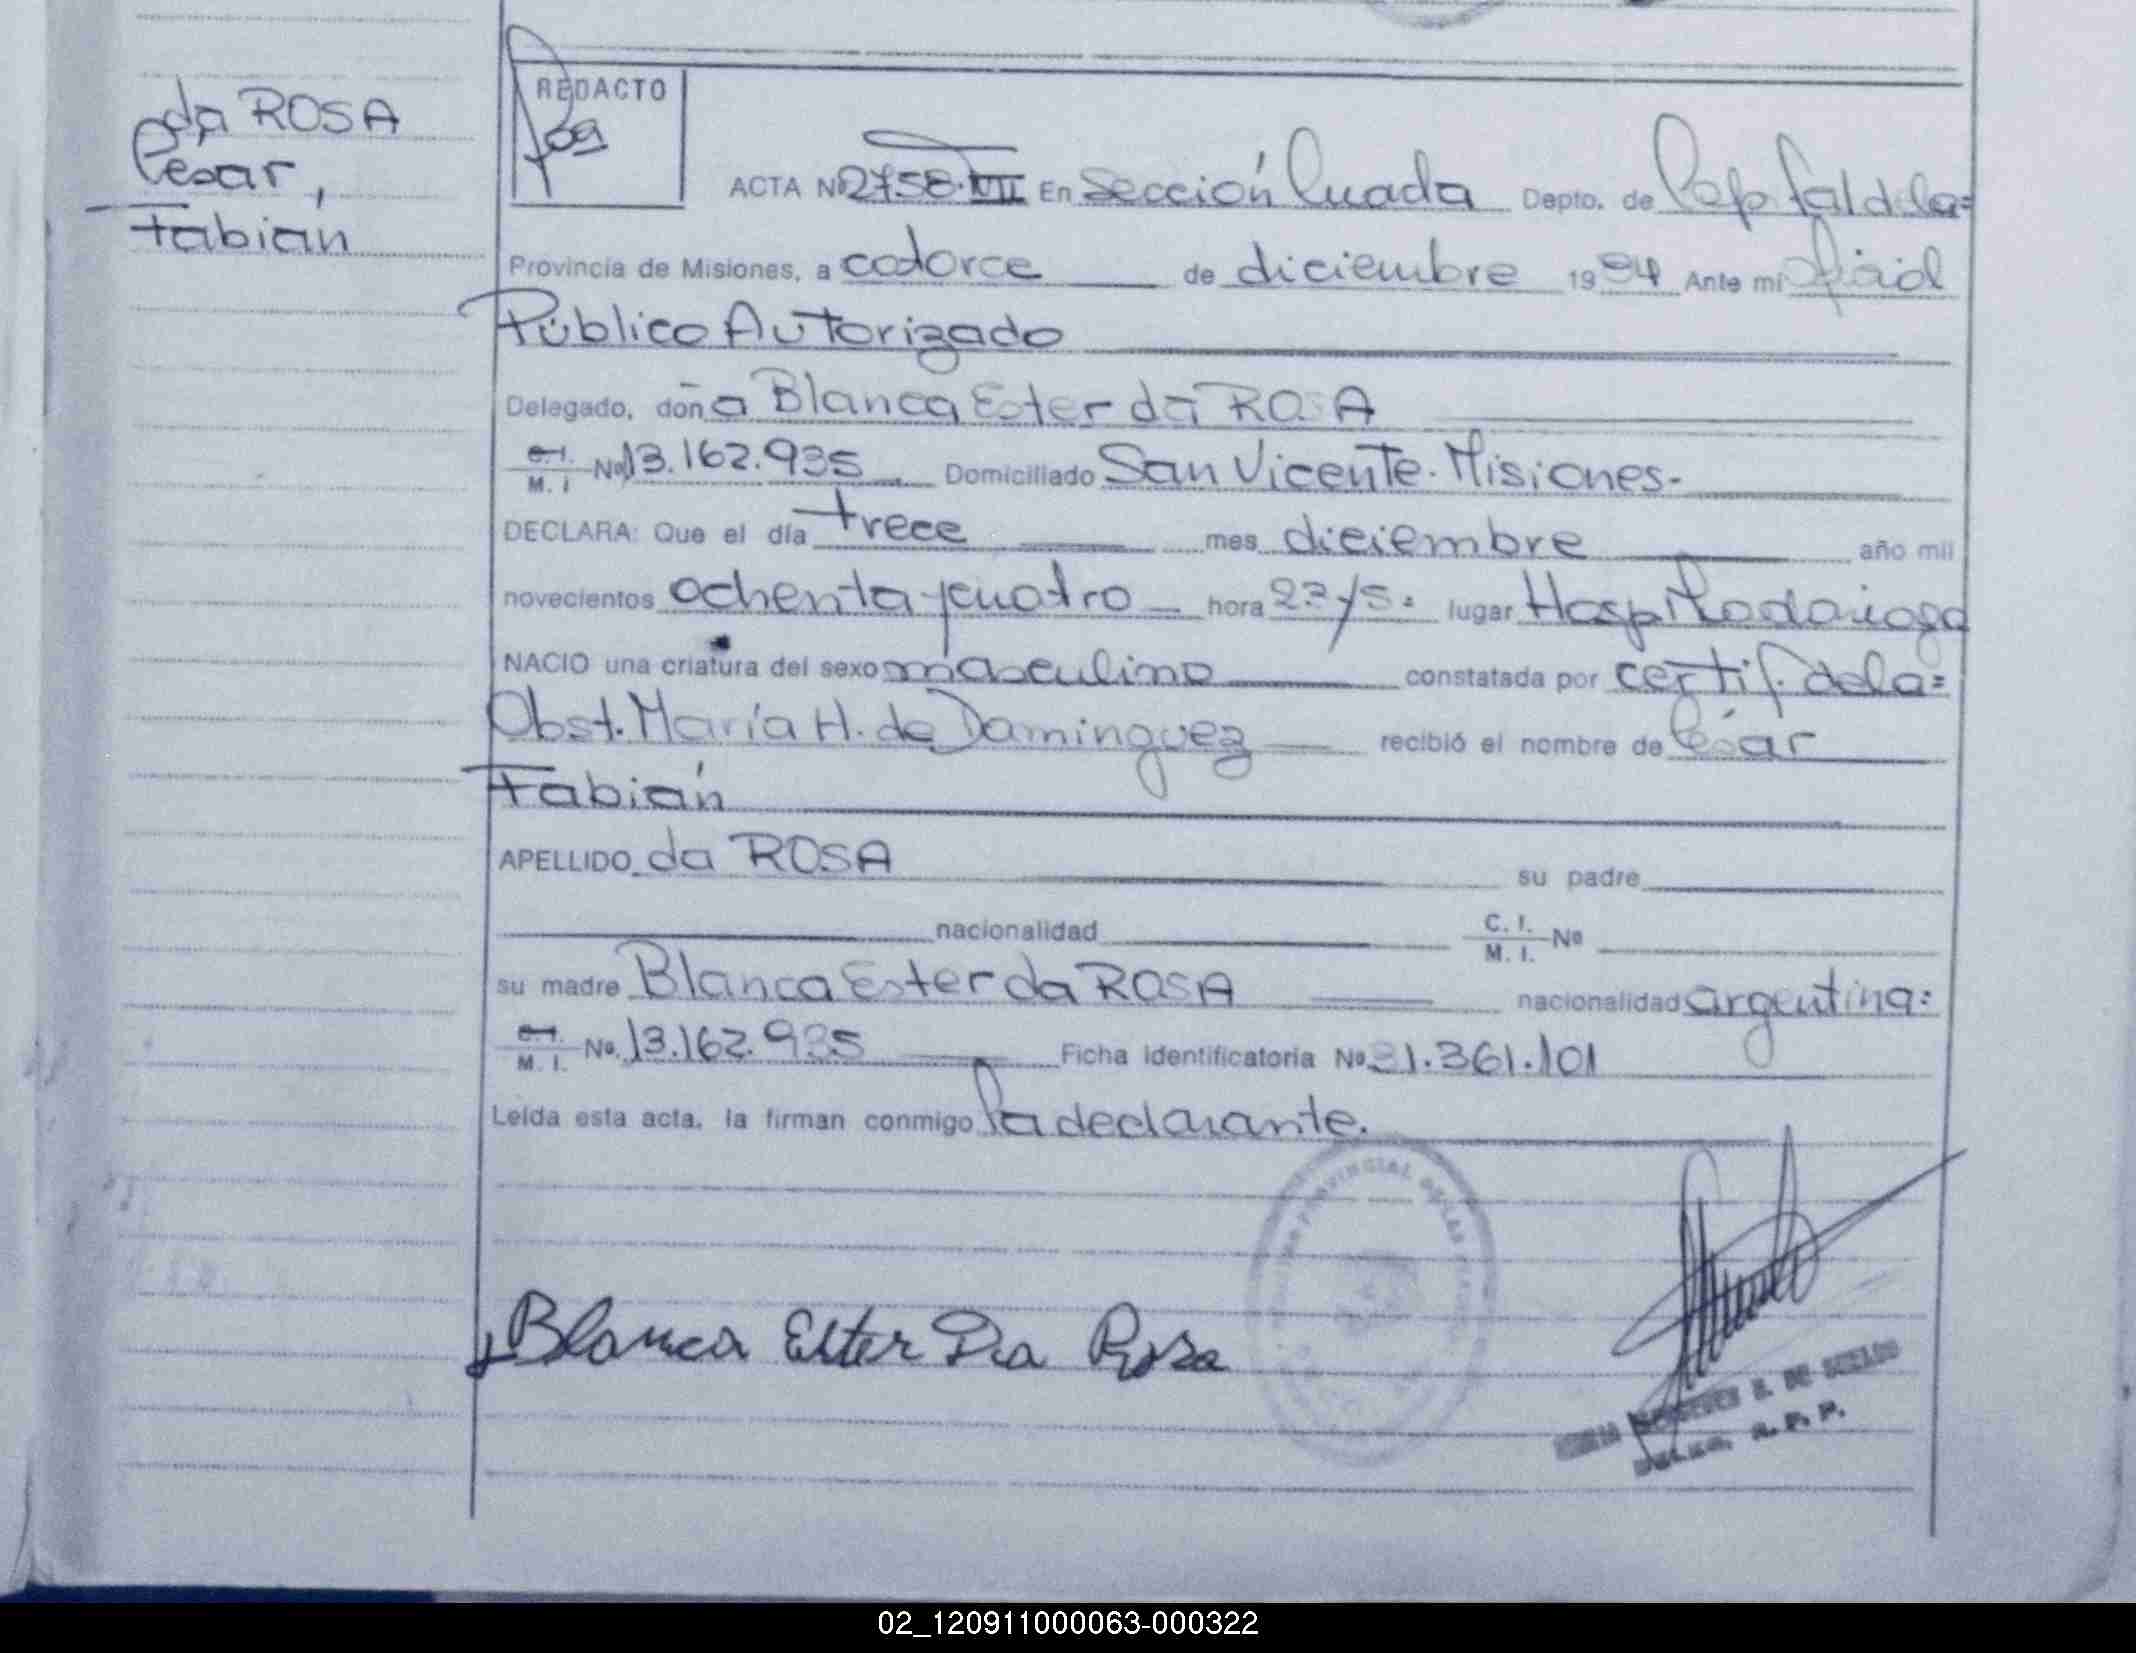 da ROSA
César,
Fabián
REDACTO
ACTA Nº 2758. VII En Sección Cuada Depto. de Cap. fal de la=
Provincia de Misiones, a catorce de diciembre 1984 Ante mí Oficial
Público Autorizado
Delegado, doña Blanca Ester da ROSA
C. I. M. I. Nº 13.162.935 Domiciliado San Vicente. Misiones.-
DECLARA: Que el día trece mes diciembre año mil
novecientos ochenta y cuatro hora lugar Hosp. Madariaga
NACIO una criatura del sexo masculino constatada por certif. de la=
Obst. María H. de Dominguez recibió el nombre de César
Fabián
APELLIDO da ROSA su padre
nacionalidad C. I. M. I. Nº
su madre Blanca Ester da ROSA nacionalidad argentina:
C. I. M. I. Nº 13.162.935 Ficha identificatoria Nº 31.361.101
Leída esta acta, la firman conmigo la declarante.
PROVINCIAL DE LAS
Blanca Ester Da Rosa
02_120911000063-000322